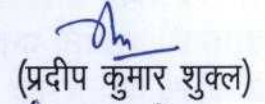 (प्रदीप कुमार शुक्ल)